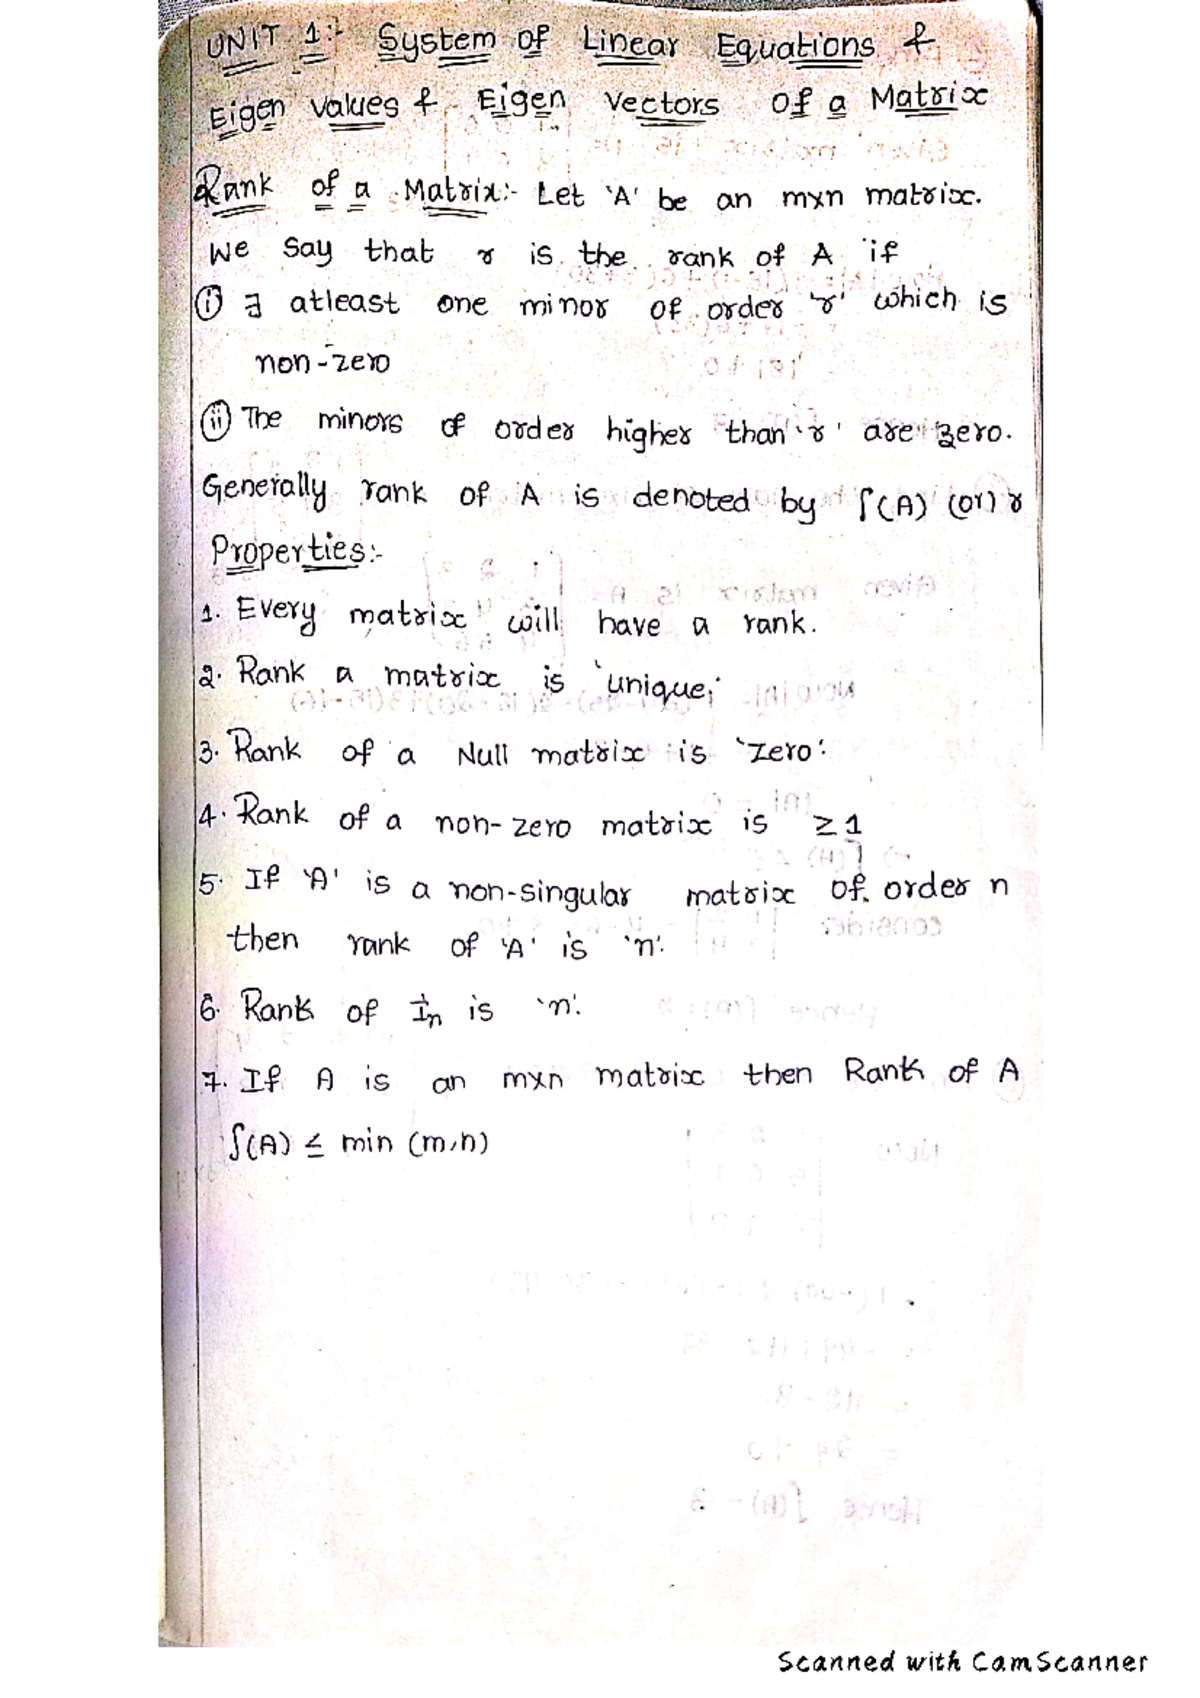 UNIT 1:- System of Linear Equations &
Eigen values & Eigen Vectors of a Matrix
Rank of a Matrix:- Let 'A' be an mxn matrix.
We say that r is the rank of A if
(i) ∃ atleast one minor of order 'r' which is
non-zero
(ii) The minors of order higher than 'r' are zero.
Generally rank of A is denoted by ʃ(A) (or) r
Properties:-
1. Every matrix will have a rank.
2. Rank a matrix is 'unique'.
3. Rank of a Null matrix is 'zero'.
4. Rank of a non-zero matrix is ≥ 1
5. If 'A' is a non-singular matrix of order n
then rank of 'A' is 'n'.
6. Rank of In is 'n'.
7. If A is an mxn matrix then Rank of A
ʃ(A) ≤ min (m,n)
Scanned with CamScanner